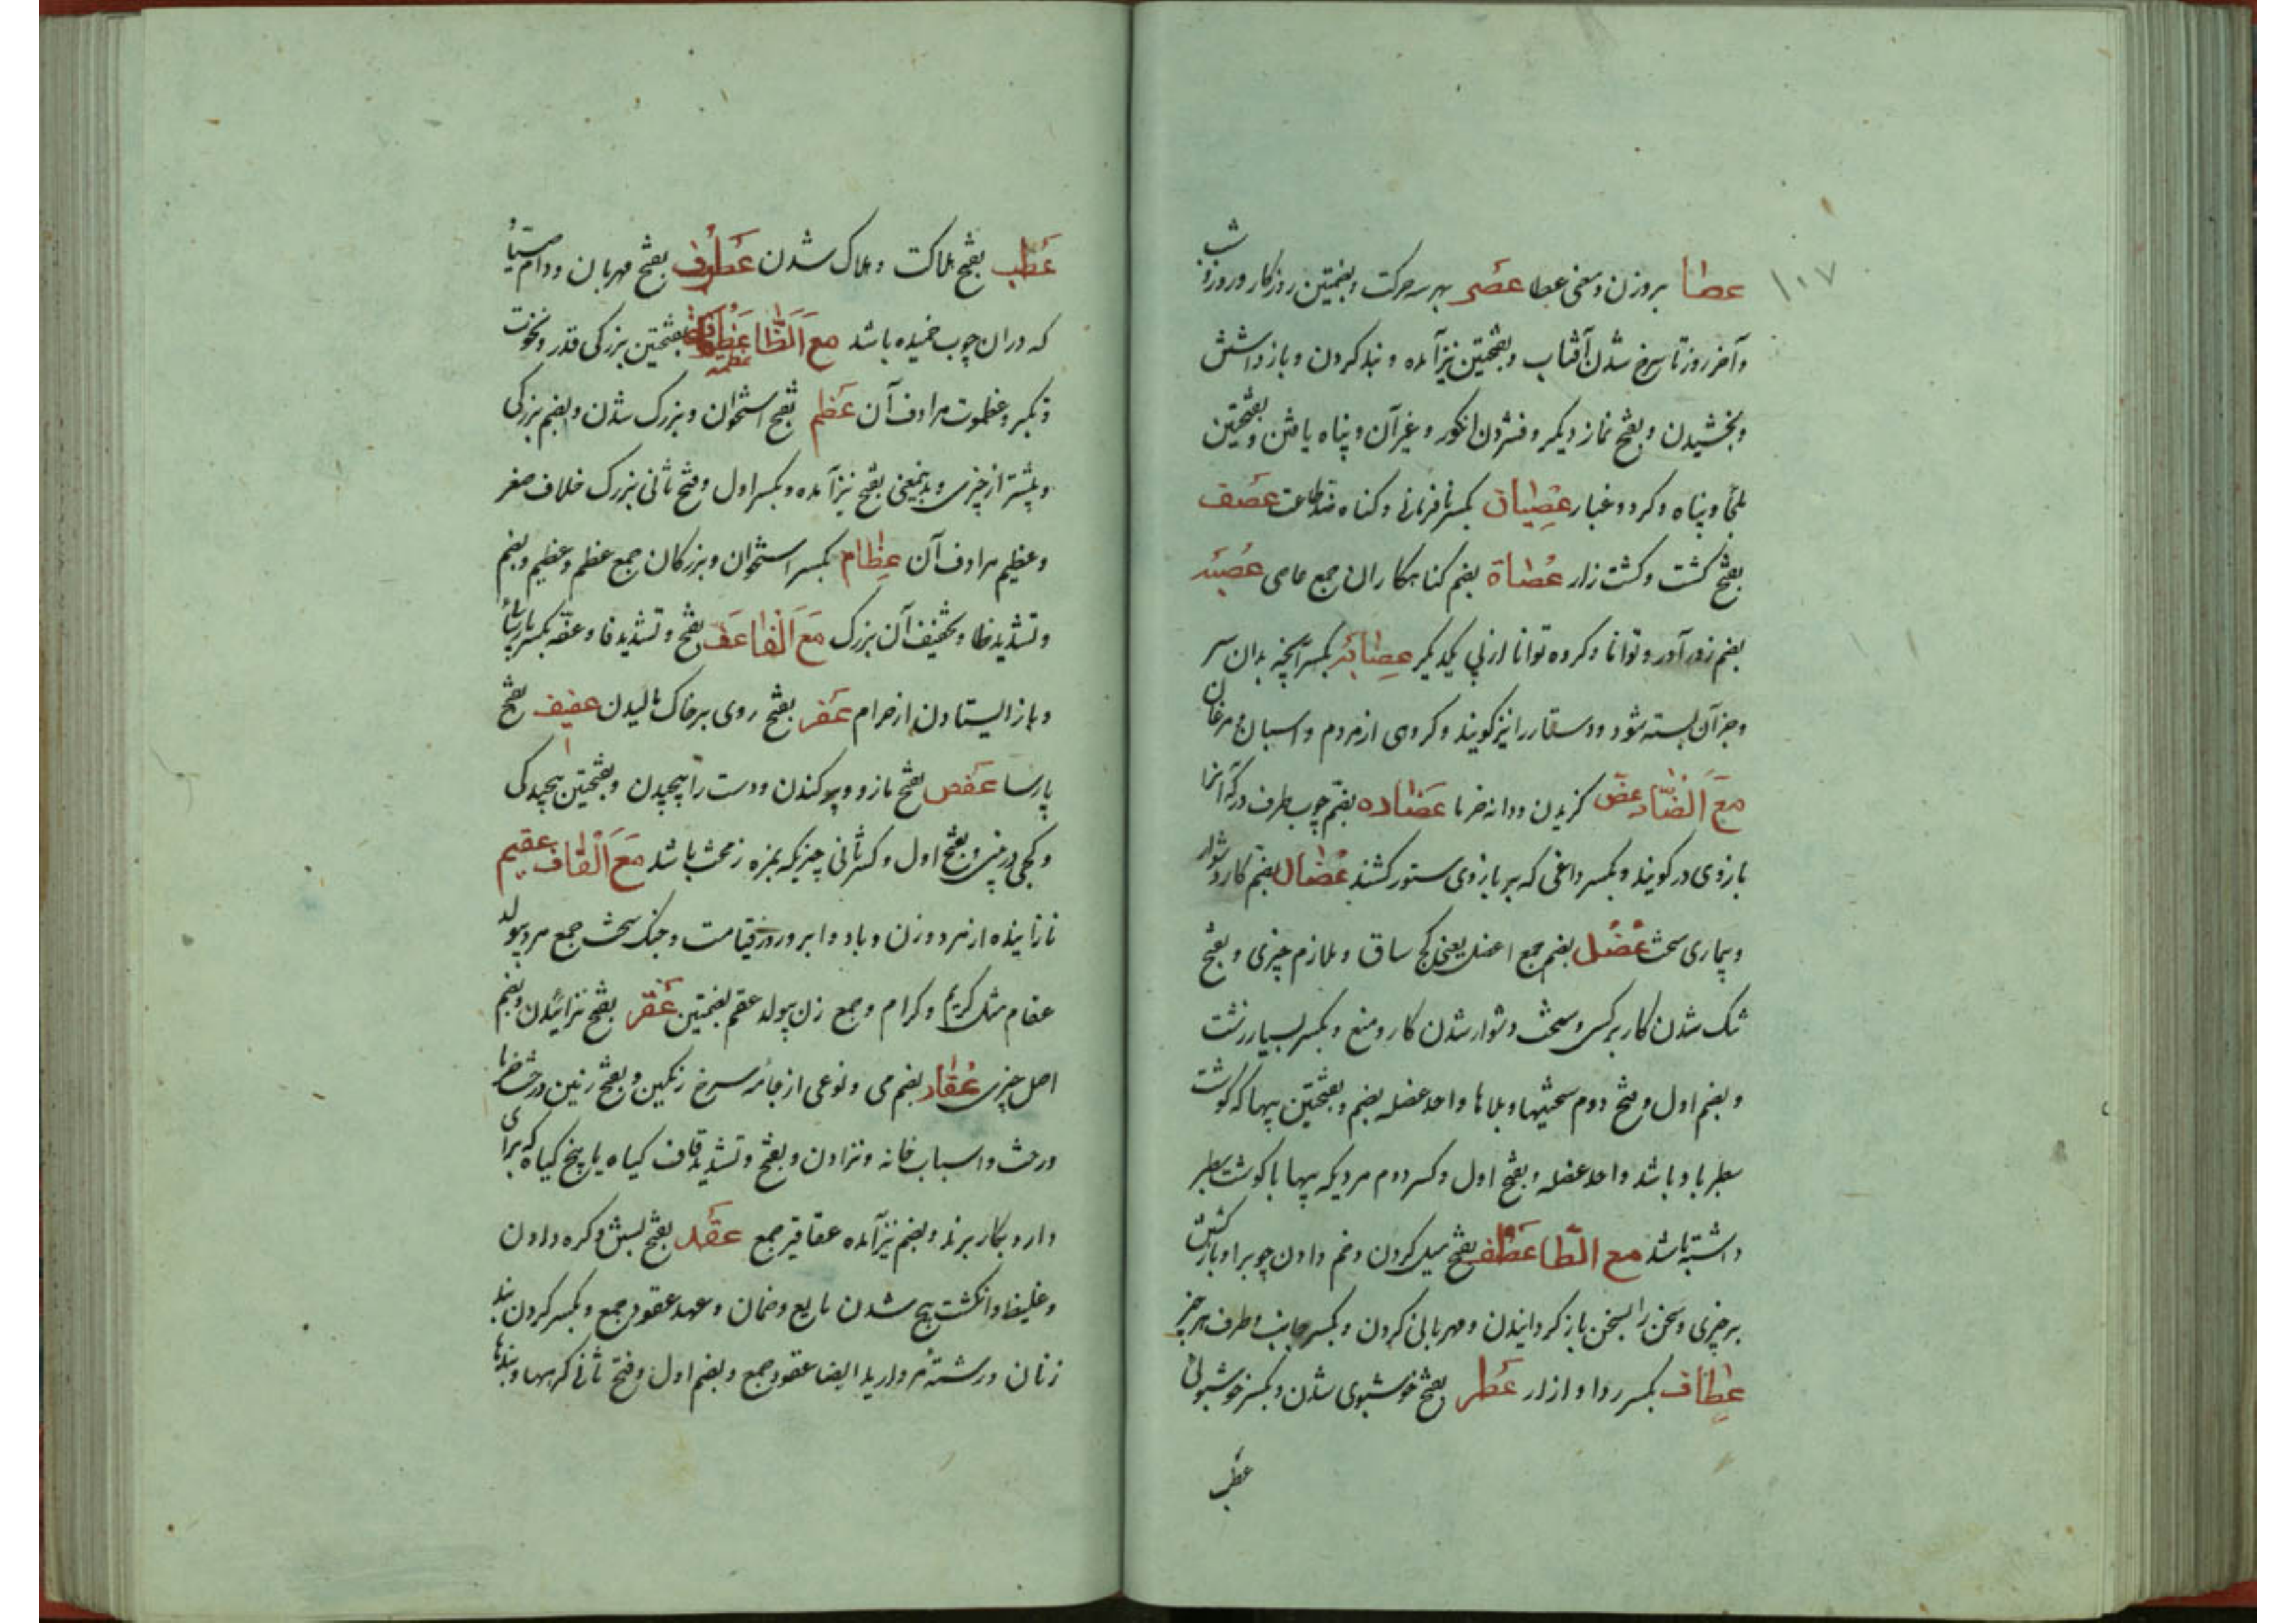 ۱۰۷
عصا بروزن ومعنی عطا عصر بهر سه حرکت وبضمتین روزکار وروز وشب
وآخر روز تا سرخ شدن آفتاب وبفتحتین نیز آمده وبند کردن وباز داشتن
وبخشیدن وبفتح نماز دیکر وفشردن انکور وغیر آن وپناه یافتن وبفتحتین
ملجأ وپناه وکرد وغبار عصیان بکسر نافرمانی وکناه ضد طاعت عصف
بفتح کشت وکشت زار عصاة بضم کناهکاران جمع عاصی عصبه
بضم زور آور وتوانا وکروه توانا از پی یکدیکر عصابه بکسر آنچه بدان سر
وجز آن بسته شود ودستار را نیز کویند وکروهی از مردم واسبان ومرغان
مع الضاد عض کزیدن ودانه خرما عضاده بضم چوب طرف در که آنرا
بازوی در کویند وبکسر داغی که بر بازوی ستور کشند عضال بضم کار دشوار
وبیماری سخت عضل بضم جمع اعضل یعنی کج ساق وملازم چیزی وبفتح
تنک شدن کار بر کسی وسخت ودشوار شدن کار ومنع وبکسر بسیار زشت
وبضم اول وفتح دوم سختیها وبلاها واحد عضله بضم وبفتحتین پیها که کوشت
سطبر با او باشد واحد عضله وبفتح اول وکسر دوم مردیکه پیها با کوشت سطبر
داشته باشد مع الطا عطف بفتح میل کردن وخم دادن چوب را وبازکشتن
بر چیزی وسخن را بسخن باز کردانیدن ومهربانی کردن وبکسر جانب وطرف هر چیز
عطاف بکسر ردا وازار عطر بفتح خوشبوی شدن وبکسر خوشبوئی
عطب
عطب بفتح هلاکت وهلاک شدن عطوف بفتح مهربان ودام صیاد
که در ان چوب خمیده باشد مع الظا عظمه بفتحتین بزرکی قدر ونخوت
وتکبر وعظموت مرادف آن عظم بفتح استخوان وبزرک شدن وبضم بزرکی
وبیشتر از چیزی وبدینمعنی بفتح نیز آمده وبکسر اول وفتح ثانی بزرک خلاف صغر
وعظیم مرادف آن عظام بکسر استخوان وبزرکان جمع عظم وعظیم وبضم
وتشدید ظا وتخفیف آن بزرک مع الفا عف بفتح وتشدید فا وعفه بکسر پارسائی
وباز ایستادن از حرام عفر بفتح روی بر خاک مالیدن عفیف بفتح
پارسا عفص بفتح مازو وپوکندن ودست را پیچیدن وبفتحتین پیچیدکی
وکجی در بینی وبفتح اول وکسر ثانی چیزیکه بمزه زمخت باشد مع القاف عقیم
نازاینده از مرد وزن وباد وابر وروز قیامت وجنک سخت جمع مرد بیولد
عقام مثل کریم وکرام وجمع زن بیولد عقم بضمتین عقر بفتح نزائیدن وبضم
اصل چیزی عقار بضم می ونوعی از جامه سرخ رنکین وبفتح زمین ودرخت خرما
ورخت واسباب خانه ونزادن وبفتح وتشدید قاف کیاه یا بیخ کیاه که برای
دارو بکار برند وبضم نیز آمده عقاقیر جمع عقد بفتح بستن وکره دادن
وغلیظ وانکشت پیچ شدن مایع وضمان وعهد عقود جمع وبکسر کردن بند
زنان ورشته مروارید ایضا عقود جمع وبضم اول وفتح ثانی کرهها وبندها